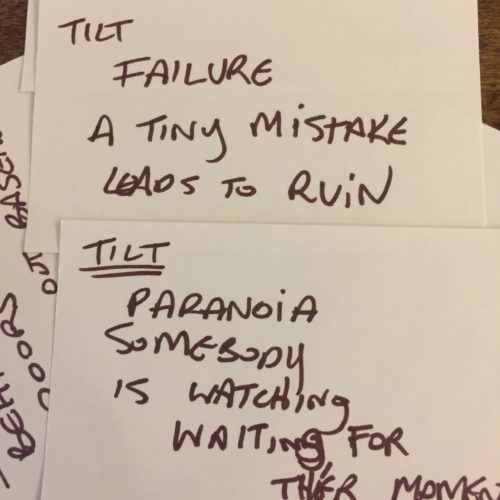 TILT
FAILURE
A TINY MISTAKE
LEADS TO RUIN
TILT
PARANOIA
SOMEBODY
IS WATCHING
WAITING FOR
THIER MOMEN
OUT
DOORS